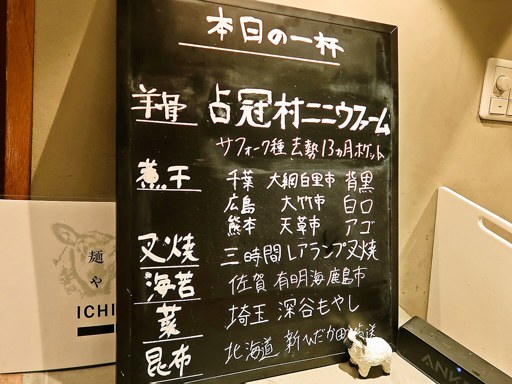 本日の一杯
羊骨 占冠村ニニウファーム
サフォーク種 去勢 13ヵ月ホゲット
煮干 千葉 大網白里市 背黒
広島 大竹市 白口
熊本 天草市 アゴ
叉焼 三時間レアランプ叉焼
海苔 佐賀 有明海鹿島市
菜 埼玉 深谷もやし
昆布 北海道 新ひだか
麺
や
ICHI